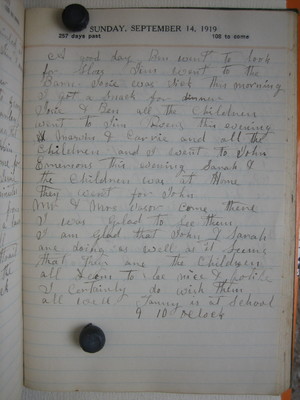 SUNDAY, SEPTEMBER 14, 1919
257 days past 108 to come
A good day Ben went to look
for Hogs Jim went to the
Barn Josie was sick this morning
I got a snack for dinner
Josie & Ben all the Children
went to Jim this evening
& Nannie & Carrie and all the
Children and I went to John
Emersons this evening Sarah &
the Children was at Home
they went for John
Mr & Mrs come there
I was glad to see them
I am glad that John & Sarah
are doing as well as it Seems
that they are the Children
all Seem to be nice & polite
I certainly do wish them
all well Fanny is at School
9 10 oclock